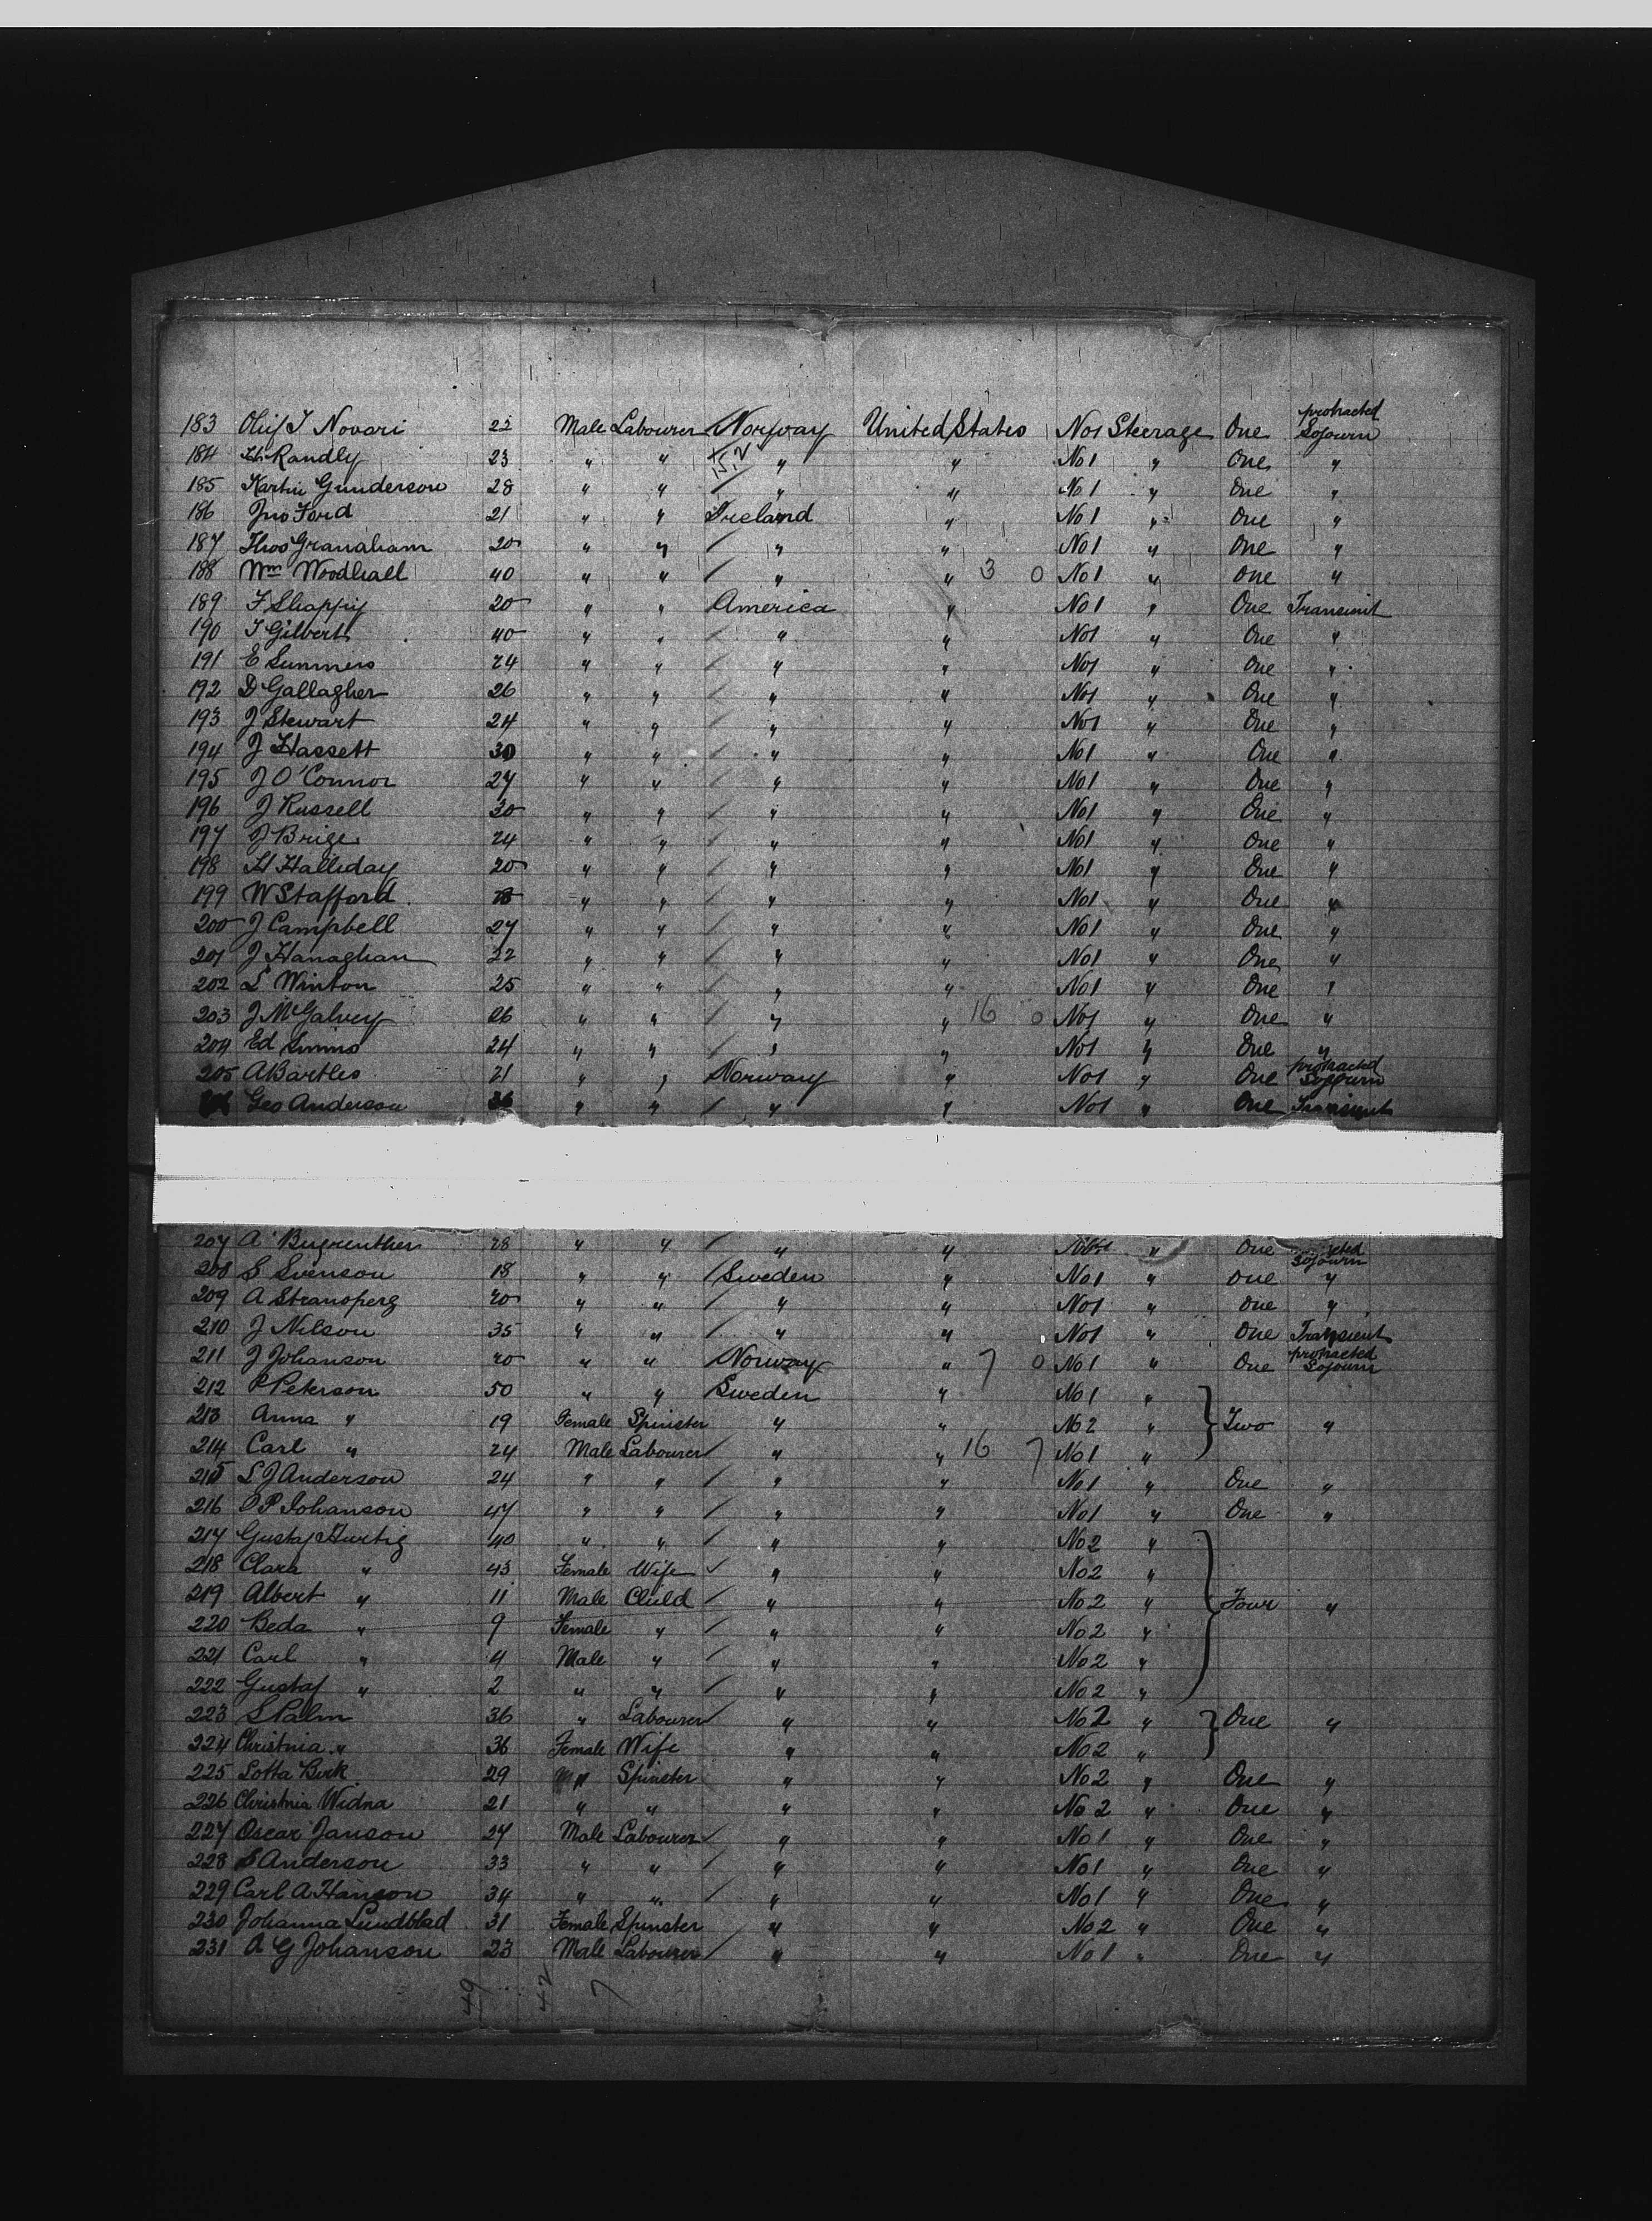 183 Oluf J Novari 22 Male Labourer Norway United States No1 Steerage One protracted Sojourn
184 H Randly 23 " " 15.2 " " No 1 " One "
185 Gunderson 28 " " " " No 1 " One "
186 Jno Ford 21 " " Ireland " No 1 " One "
187 Thos Granaham 20 " " " " No 1 " One "
188 Wm Woodhall 40 " " " " 3 0 No 1 " One "
189 F Shappy 20 " " America " No 1 " One Transient
190 T Gilbert 40 " " " " No1 " One "
191 E Summers 24 " " " " No1 " One "
192 D Gallagher 26 " " " " No1 " One "
193 J Stewart 24 " " " " No1 " One "
194 J Hassett 30 " " " " No1 " One "
195 J O'Connor 27 " " " " No1 " One "
196 J Russell 30 " " " " No1 " One "
197 J Brige 24 " " " " No1 " One "
198 H Halliday 20 " " " " No1 " One "
199 W Stafford " " " " No1 " One "
200 J Campbell 27 " " " " No1 " One "
201 J Hanaghan 22 " " " " No1 " One "
202 L Winton 25 " " " " No1 " One "
203 J McGalvey 26 " " " " 16 0 No1 " One "
204 Ed Simms 24 " " " " No1 " One "
205 A Bartles 21 " " Norway " No1 " One protracted Sojourn
Geo Anderson 36 " " " " No1 " One Transient
207 A 28 " " " " " One Sojourn
208 S Svenson 18 " " Sweden " No1 " One "
209 A Stransperg 20 " " " " No1 " One "
210 J Nilson 35 " " " " No1 " One Transient
211 J Johanson 20 " " Norway " 7 0 No 1 " One protracted Sojourn
212 P Peterson 50 " " Sweden " No 1 "
213 Anna " 19 Female Spinster " " No 2 " Two "
214 Carl " 24 Male Labourer " " 16 7 No1 "
215 L J Anderson 24 " " " " No 1 " One "
216 O P Johanson 47 " " " " No1 " One "
217 Gustaf Hurtig 40 " " " " No2 "
218 Clara " 43 Female Wife " " No2 "
219 Albert " 11 Male Child " " No 2 " Four "
220 Beda " 9 Female " " " No 2 "
221 Carl " 4 Male " " " No 2 "
222 Gustaf " 2 " " " " No 2 "
223 S Palm 36 " Labourer " " No 2 " One "
224 Christnia " 36 Female Wife " " No2 "
225 Lotta Berk 29 " Spinster " " No 2 " One "
226 Christnia Widna 21 " " " " No 2 " One "
227 Oscar Janson 27 Male Labourer " " No 1 " One "
228 S Anderson 33 " " " " No 1 " One "
229 Carl A Hanson 34 " " " " No 1 " One "
230 Johanna Lundblad 31 Female Spinster " " No 2 " One "
231 A G Johanson 23 Male Labourer " " No 1 " One "
49 42 7